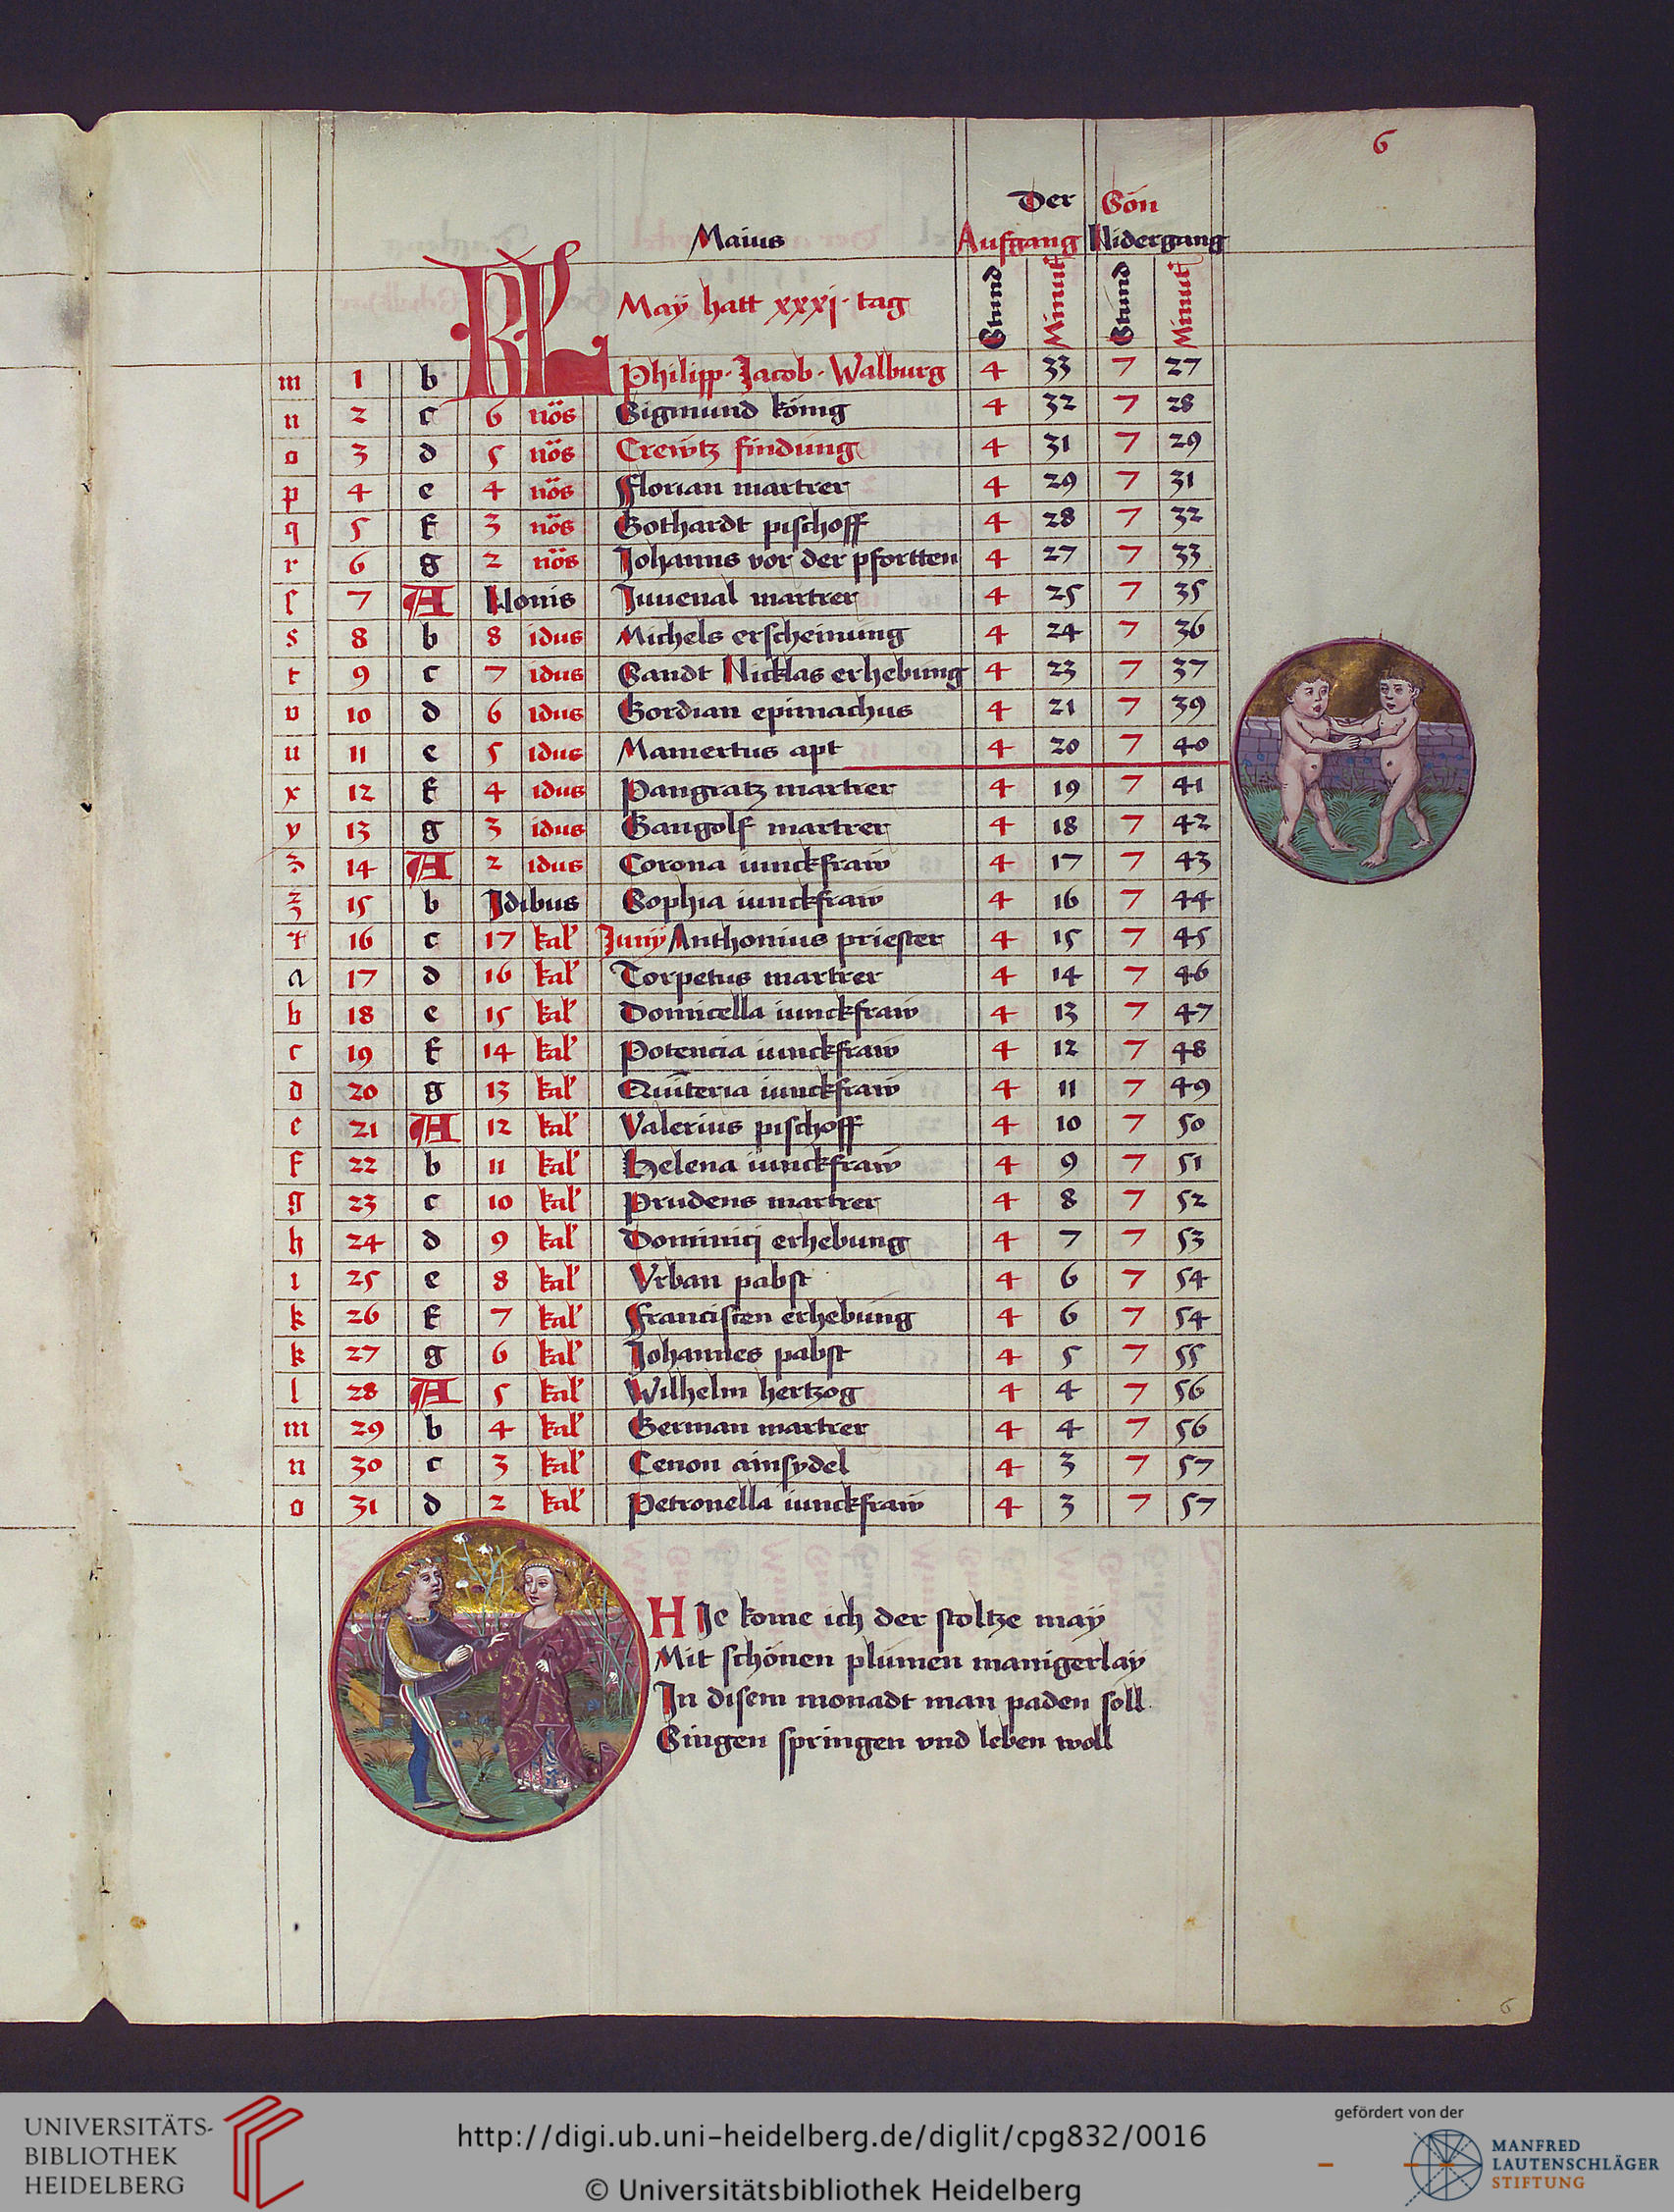 6
Der Son
Maius Aufgang Nidergang
KL May hatt xxxj · tag Stund Minut Stund Minut
m 1 b Philipp · Jacob · Walburg 4 33 7 27
n 2 c 6 nōs Sigmund kónig 4 32 7 28
o 3 d 5 nōs Crewtz findung 4 31 7 29
p 4 e 4 nōs Florian martrer 4 29 7 31
q 5 f 3 nōs Gothardt pischoff 4 28 7 32
r 6 g 2 nōs Johanns vor der pfortten 4 27 7 33
ſ 7 A Nonis Juuenal martrer 4 25 7 35
s 8 b 8 idus Michels erscheinung 4 24 7 36
t 9 c 7 idus Sandt Nicklas erhebung 4 23 7 37
v 10 d 6 idus Gordian epimachus 4 21 7 39
u 11 e 5 idus Mamertus apt 4 20 7 40
x 12 f 4 idus Pangratz martrer 4 19 7 41
y 13 g 3 idus Gangolf martrer 4 18 7 42
z 14 A 2 idus Corona iunckfraw 4 17 7 43
15 b Jdibus Sophia iunckfraw 4 16 7 44
16 c 17 kal' Junij Anthonius priester 4 15 7 45
a 17 d 16 kal' Torpetus martrer 4 14 7 46
b 18 e 15 kal' Domicella iunckfraw 4 13 7 47
c 19 f 14 kal' Potencia iunckfraw 4 12 7 48
d 20 g 13 kal' Quīteria iunckfraw 4 11 7 49
e 21 A 12 kal' Valerius pischoff 4 10 7 50
f 22 b 11 kal' Helena iunckfraw 4 9 7 51
g 23 c 10 kal' Prudens martrer 4 8 7 52
h 24 d 9 kal' Dominicj erhebung 4 7 7 53
i 25 e 8 kal' Vrban pabst 4 6 7 54
k 26 f 7 kal' Franciscen erhebung 4 6 7 54
k 27 g 6 kal' Johannes pabst 4 5 7 55
l 28 A 5 kal' Wilhelm hertzog 4 4 7 56
m 29 b 4 kal' German martrer 4 4 7 56
n 30 c 3 kal' Cenon ainsydel 4 3 7 57
o 31 d 2 kal' Petronella iunckfraw 4 3 7 57
HIe kome ich der stoltze maÿ
Mit schónen plúmen manigerlaÿ
In disem monadt man paden soll
Singen springen vnd leben woll
6
UNIVERSITÄTS-
BIBLIOTHEK
HEIDELBERG
http://digi.ub.uni-heidelberg.de/diglit/cpg832/0016
© Universitätsbibliothek Heidelberg
gefördert von der
MANFRED
LAUTENSCHLÄGER
STIFTUNG